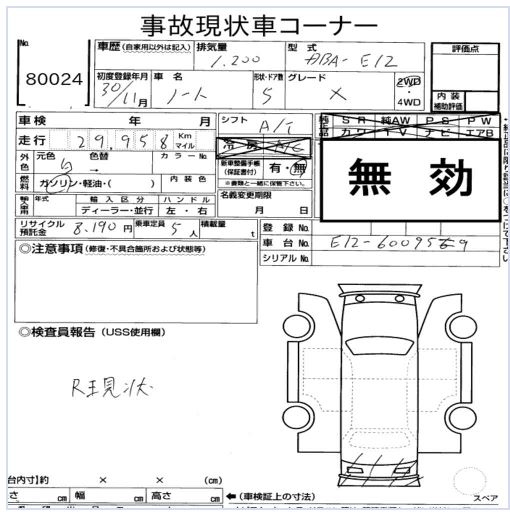 事故現状車コーナー
No.
80024
車歴 (自家用以外は記入)
排気量
1.200
型式
ABA-E12
評価点
初度登録年月
30/11月
車名
ノート
形状・ドア数
5
グレード
X
2WD
・
4WD
内装
補助評価
車検 年 月
シフト
A/T
SR 純AW PS PW
カワ TV ナビ エアB
走行 29.958 Km マイル
冷房 A/C
無効
外色
元色
色替
カラーNo.
新車整備手帳
(保証書付)
有・無
※書類と一緒に保管下さい。
燃料
ガソリン・軽油・( )
内装色
名義変更期限
月 日
輸入車
年式
輸入区分
ディーラー・並行
ハンドル
左・右
リサイクル
預託金
8.190円
乗車定員
5人
積載量
t
登録No.
車台No.
シリアルNo.
◎注意事項 (修復・不具合箇所および状態等)
◎検査員報告 (USS使用欄)
R現状
台内寸)約 × × (cm)
さ cm 幅 cm 高さ cm
← (車検証上の寸法)
スペア